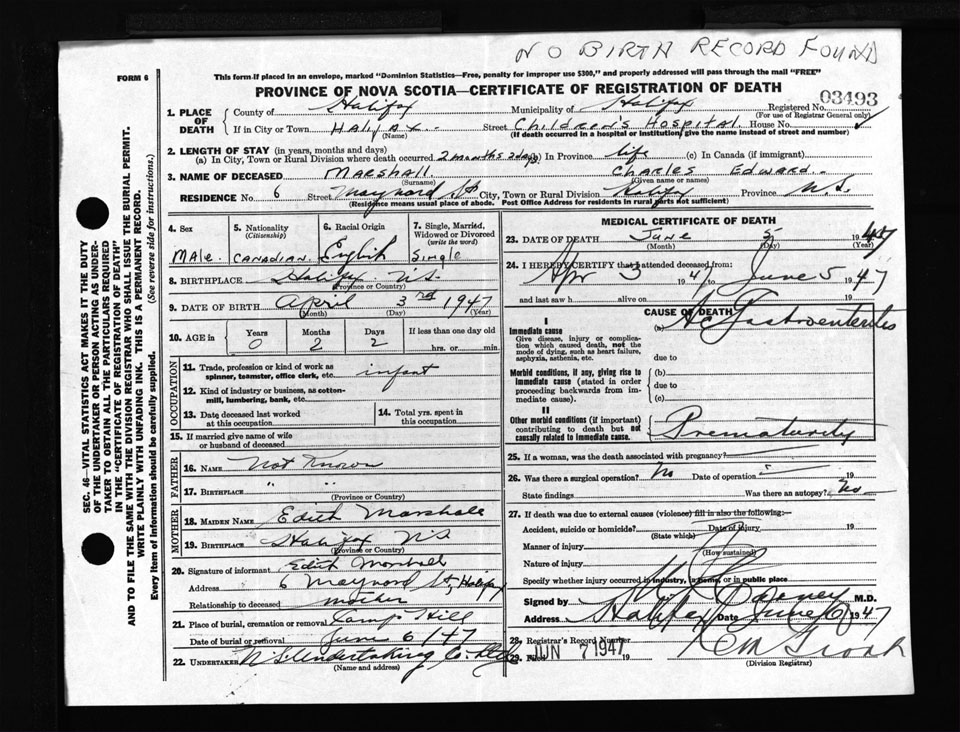 NO BIRTH RECORD FOUND
FORM 6
This form if placed in an envelope, marked "Dominion Statistics—Free, penalty for improper use $300," and properly addressed will pass through the mail "FREE"
PROVINCE OF NOVA SCOTIA—CERTIFICATE OF REGISTRATION OF DEATH
Registered No. 03493
(For use of Registrar General only)
1. PLACE OF DEATH
County of Halifax Municipality of Halifax
If in City or Town Halifax Street Children's Hospital House No.
(Name) (If death occurred in hospital or institution, give the name instead of street and number)
2. LENGTH OF STAY (in years, months and days)
(a) In City, Town or Rural Division where death occurred 2 months 2 days (b) In Province life (c) In Canada (if immigrant)
3. NAME OF DECEASED Marshall Charles Edward
(Surname) (Given name or names)
RESIDENCE No. 6 Street Maynard St City, Town or Rural Division Halifax Province N.S.
(Residence means usual place of abode. Post Office Address for residents in rural parts not sufficient)
4. Sex Male
5. Nationality (Citizenship) Canadian
6. Racial Origin English
7. Single, Married, Widowed or Divorced (write the word) Single
8. BIRTHPLACE Halifax N.S.
(Province or Country)
9. DATE OF BIRTH April 3rd 1947
(Month) (Day) (Year)
10. AGE in Years Months Days If less than one day old
0 2 2 hrs. or min.
OCCUPATION
11. Trade, profession or kind of work as spinner, teamster, office clerk, etc. infant
12. Kind of industry or business, as cotton-mill, lumbering, bank, etc.
13. Date deceased last worked at this occupation
14. Total yrs. spent in this occupation
15. If married give name of wife or husband of deceased
FATHER
16. NAME Not Known
17. BIRTHPLACE " "
(Province or Country)
MOTHER
18. MAIDEN NAME Edith Marshall
19. BIRTHPLACE Halifax N.S.
(Province or Country)
20. Signature of informant Edith
Address 6 Maynard St, Halifax
Relationship to deceased mother
21. Place of burial, cremation or removal Camp Hill
Date of burial or removal June 6/47
22. UNDERTAKER N.S. Undertaking Co.
(Name and address)
MEDICAL CERTIFICATE OF DEATH
23. DATE OF DEATH June 5 1947
(Month) (Day) (Year)
24. I HEREBY CERTIFY that I attended deceased from
Apr 3 47 June 5 1947
and last saw h alive on 19
CAUSE OF DEATH
I
Immediate cause
Give disease, injury or complication which caused death, not the mode of dying, such as heart failure, asphyxia, asthenia, etc.
(a) Ac Gastroenteritis
due to
Morbid conditions, if any, giving rise to immediate cause (stated in order proceeding backwards from immediate cause).
(b)
due to
(c)
II
Other morbid conditions (if important) contributing to death but not causally related to immediate cause.
Prematurity
25. If a woman, was the death associated with pregnancy?
26. Was there a surgical operation? No Date of operation 19
State findings Was there an autopsy? No
27. If death was due to external causes (violence) fill in also the following:—
Accident, suicide or homicide? Date of injury 19
(State which)
Manner of injury
(How sustained)
Nature of injury
Specify whether injury occurred in industry, a home, or in public place
Signed by M.D.
Address Halifax Date June 6 1947
28. Registrar's Record Number
29. Filed JUN 7 1947 19
(Division Registrar)
SEC. 46—VITAL STATISTICS ACT MAKES IT THE DUTY
OF THE UNDERTAKER OR PERSON ACTING AS UNDER-
TAKER TO OBTAIN ALL THE PARTICULARS REQUIRED
IN THE "CERTIFICATE OF REGISTRATION OF DEATH"
AND TO FILE THE SAME WITH THE DIVISION REGISTRAR WHO SHALL ISSUE THE BURIAL PERMIT.
WRITE PLAINLY WITH UNFADING INK. THIS IS A PERMANENT RECORD.
Every item of information should be carefully supplied. (See reverse side for instructions.)